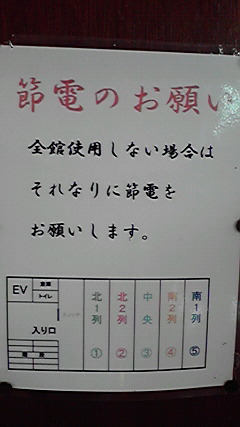 節電のお願い
全館使用しない場合は
それなりに節電を
お願いします。
EV
倉庫
トイレ
入り口
北1列
①
北2列
②
中央
③
南2列
④
南1列
⑤